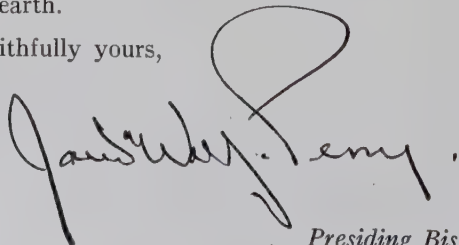 earth.
ithfully yours,
James DeWolf Perry.
Presiding Bis